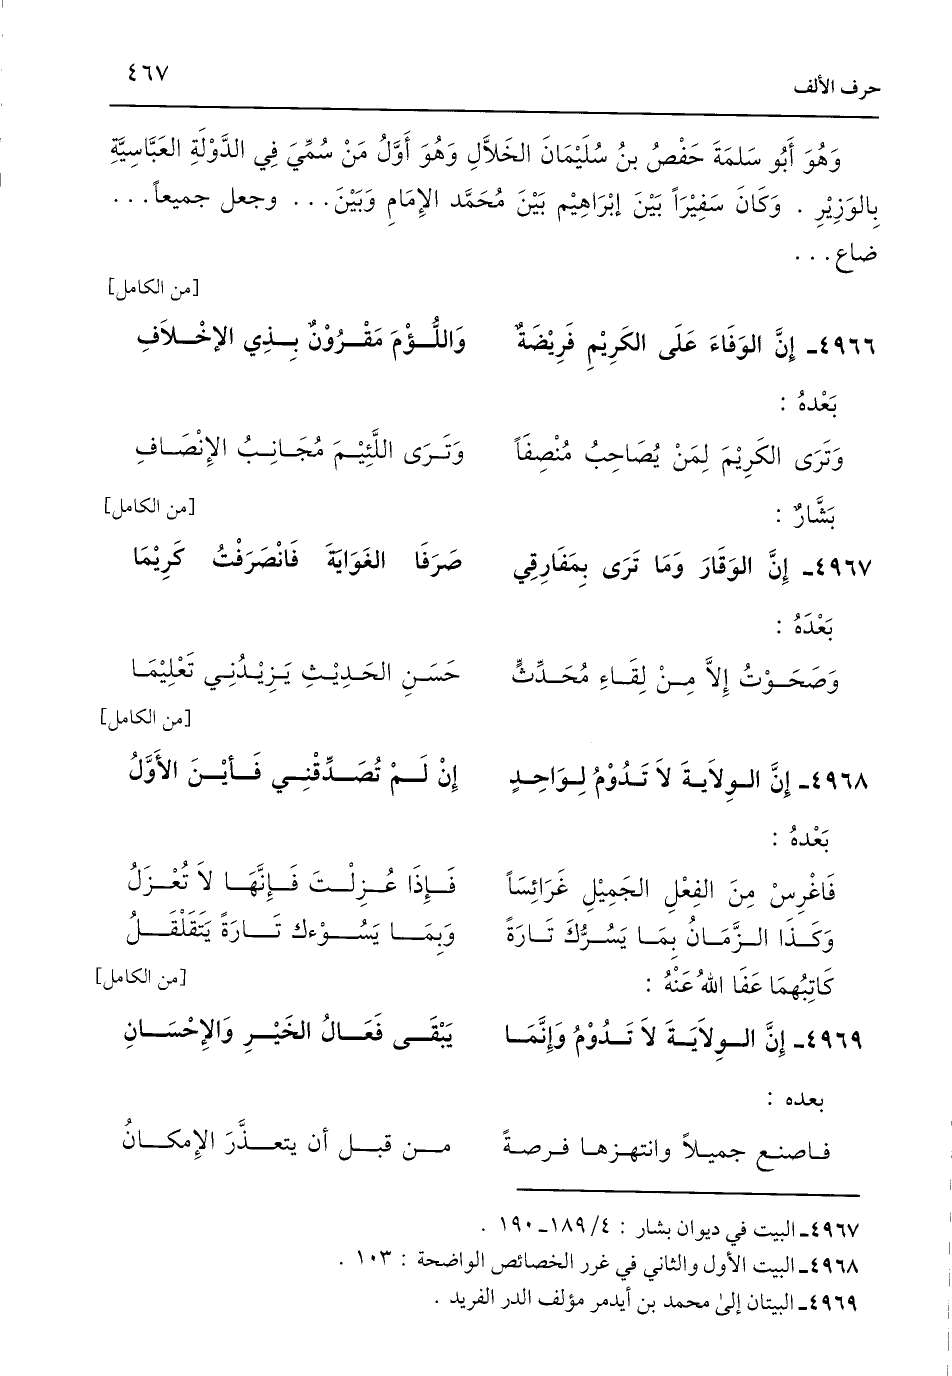 حرف الألف ٤٦٧
وَهُوَ أَبُو سَلمَةَ حَفْصُ بنُ سُلَيْمَانَ الخَلاَّلِ وَهُوَ أَوَّلُ مَنْ سُمِّيَ فِي الدَّوْلَةِ العَبَّاسِيَّةِ
بِالوَزِيْرِ . وَكَانَ سَفِيْرَاً بَيْنَ إبْرَاهِيْمِ بَيْنَ مُحَمَّد الإمَامِ وَبَيْنَ... وجعل جميعاً...
ضاع...
[من الكامل]
٤٩٦٦ـ إِنَّ الوَفَاءَ عَلَى الكَرِيْمِ فَرِيْضَةٌ وَاللُّؤْمَ مَقْرُوْنٌ بِذِي الإخْلاَفِ
بَعْدهُ :
وَتَرَى الكَرِيْمَ لِمَنْ يُصَاحِبُ مُنْصِفَاً وَتَرَى اللَّئِيْمَ مُجَانِبُ الإنْصَافِ
بَشَّارٌ : [من الكامل]
٤٩٦٧ـ إِنَّ الوَقَارَ وَمَا تَرَى بِمَفَارِقِي صَرَفَا الغَوَايَةَ فَانْصَرَفْتُ كَرِيْمَا
بَعْدَهُ :
وَصَحَوْتُ إِلاَّ مِنْ لِقَاءِ مُحَدِّثٍ حَسَنِ الحَدِيْثِ يَزِيْدُنِي تَعْلِيْمَا
[من الكامل]
٤٩٦٨ـ إِنَّ الوِلاَيَةَ لاَ تَدُوْمُ لِوَاحِدٍ إِنْ لَمْ تُصَدِّقْنِي فَأَيْنَ الأَوَّلُ
بَعْدهُ :
فَاغْرِسْ مِنَ الفِعْلِ الجَمِيْلِ غَرَائِسَاً فَإِذَا عُزِلْتَ فَإِنَّهَا لاَ تُعْزَلُ
وَكَذَا الزَّمَانُ بِمَا يَسُرُّكَ تَارَةً وَبِمَا يَسُوْءكَ تَارَةً يَتَقَلْقَلُ
كَاتِبُهُمَا عَفَا اللهُ عَنْهُ : [من الكامل]
٤٩٦٩ـ إِنَّ الوِلاَيَةَ لاَ تَدُوْمُ وَإِنَّمَا يَبْقَى فَعَالُ الخَيْرِ وَالإِحْسَانِ
بعده :
فاصنع جميلاً وانتهزها فرصةً من قبل أن يتعذَّرَ الإمكانُ
٤٩٦٧ـ البيت في ديوان بشار : ٤/ ١٨٩ـ١٩٠ .
٤٩٦٨ـ البيت الأول والثاني في غرر الخصائص الواضحة : ١٠٣ .
٤٩٦٩ـ البيتان إلىٰ محمد بن أيدمر مؤلف الدر الفريد .